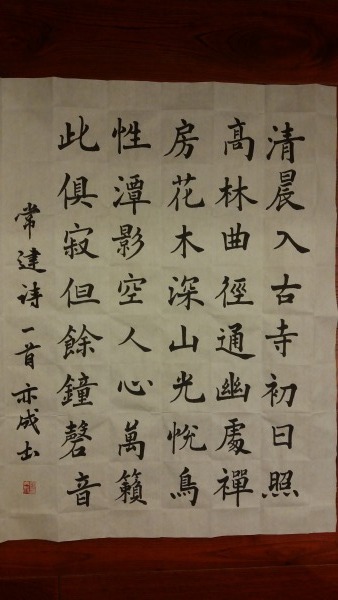 清晨入古寺初日照
高林曲徑通幽處禪
房花木深山光悅鳥
性潭影空人心萬籟
此俱寂但餘鐘磬音
常建诗一首亦成书